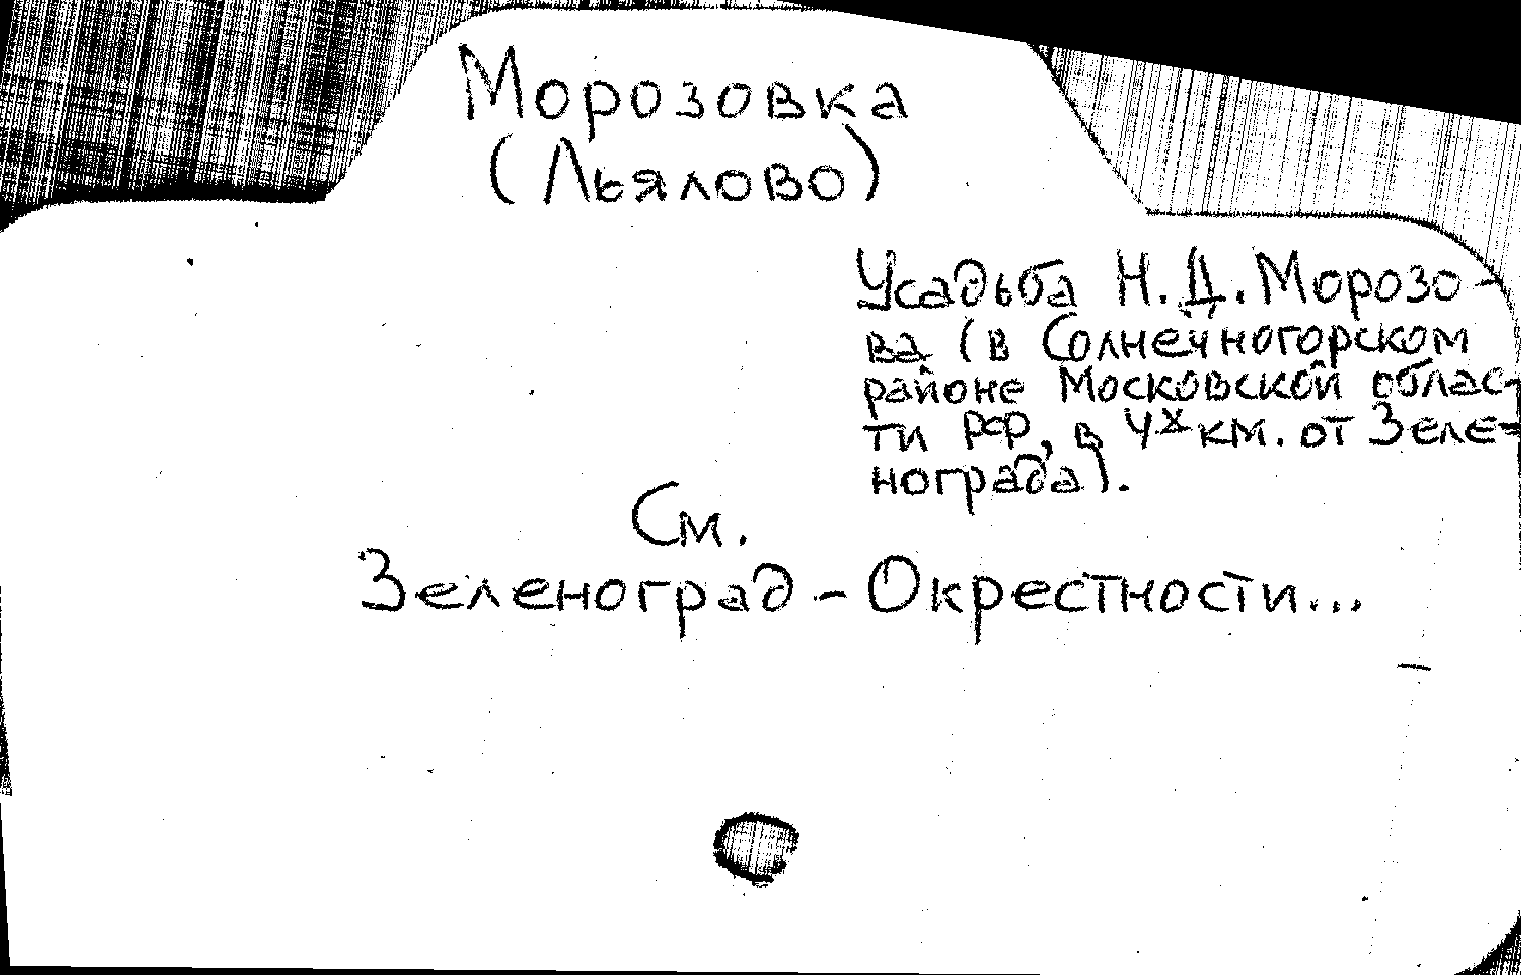 Морозовка
(Льялово)
Усадьба Н.Д. Морозо-
ва (в Солнечногорском
районе Московской облас-
ти РФ, в 4х км. от Зеле-
нограда).
См.
Зеленоград - Окрестности...